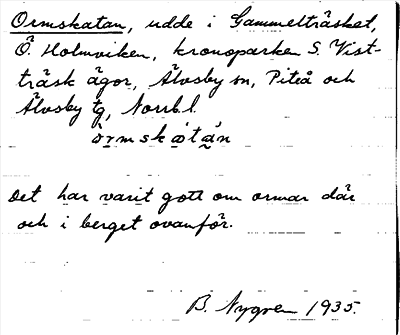 Ormskatan, udde i Gammelträsket,
Ö Holmviken, kronoparken S. Vist-
träsk ägor, Älvsby sn, Piteå och
Älvsby tg, Norrb.l.
òrmskàtán
Det har varit gott om ormar där
och i berget ovanför.
B. Nygren 1935.